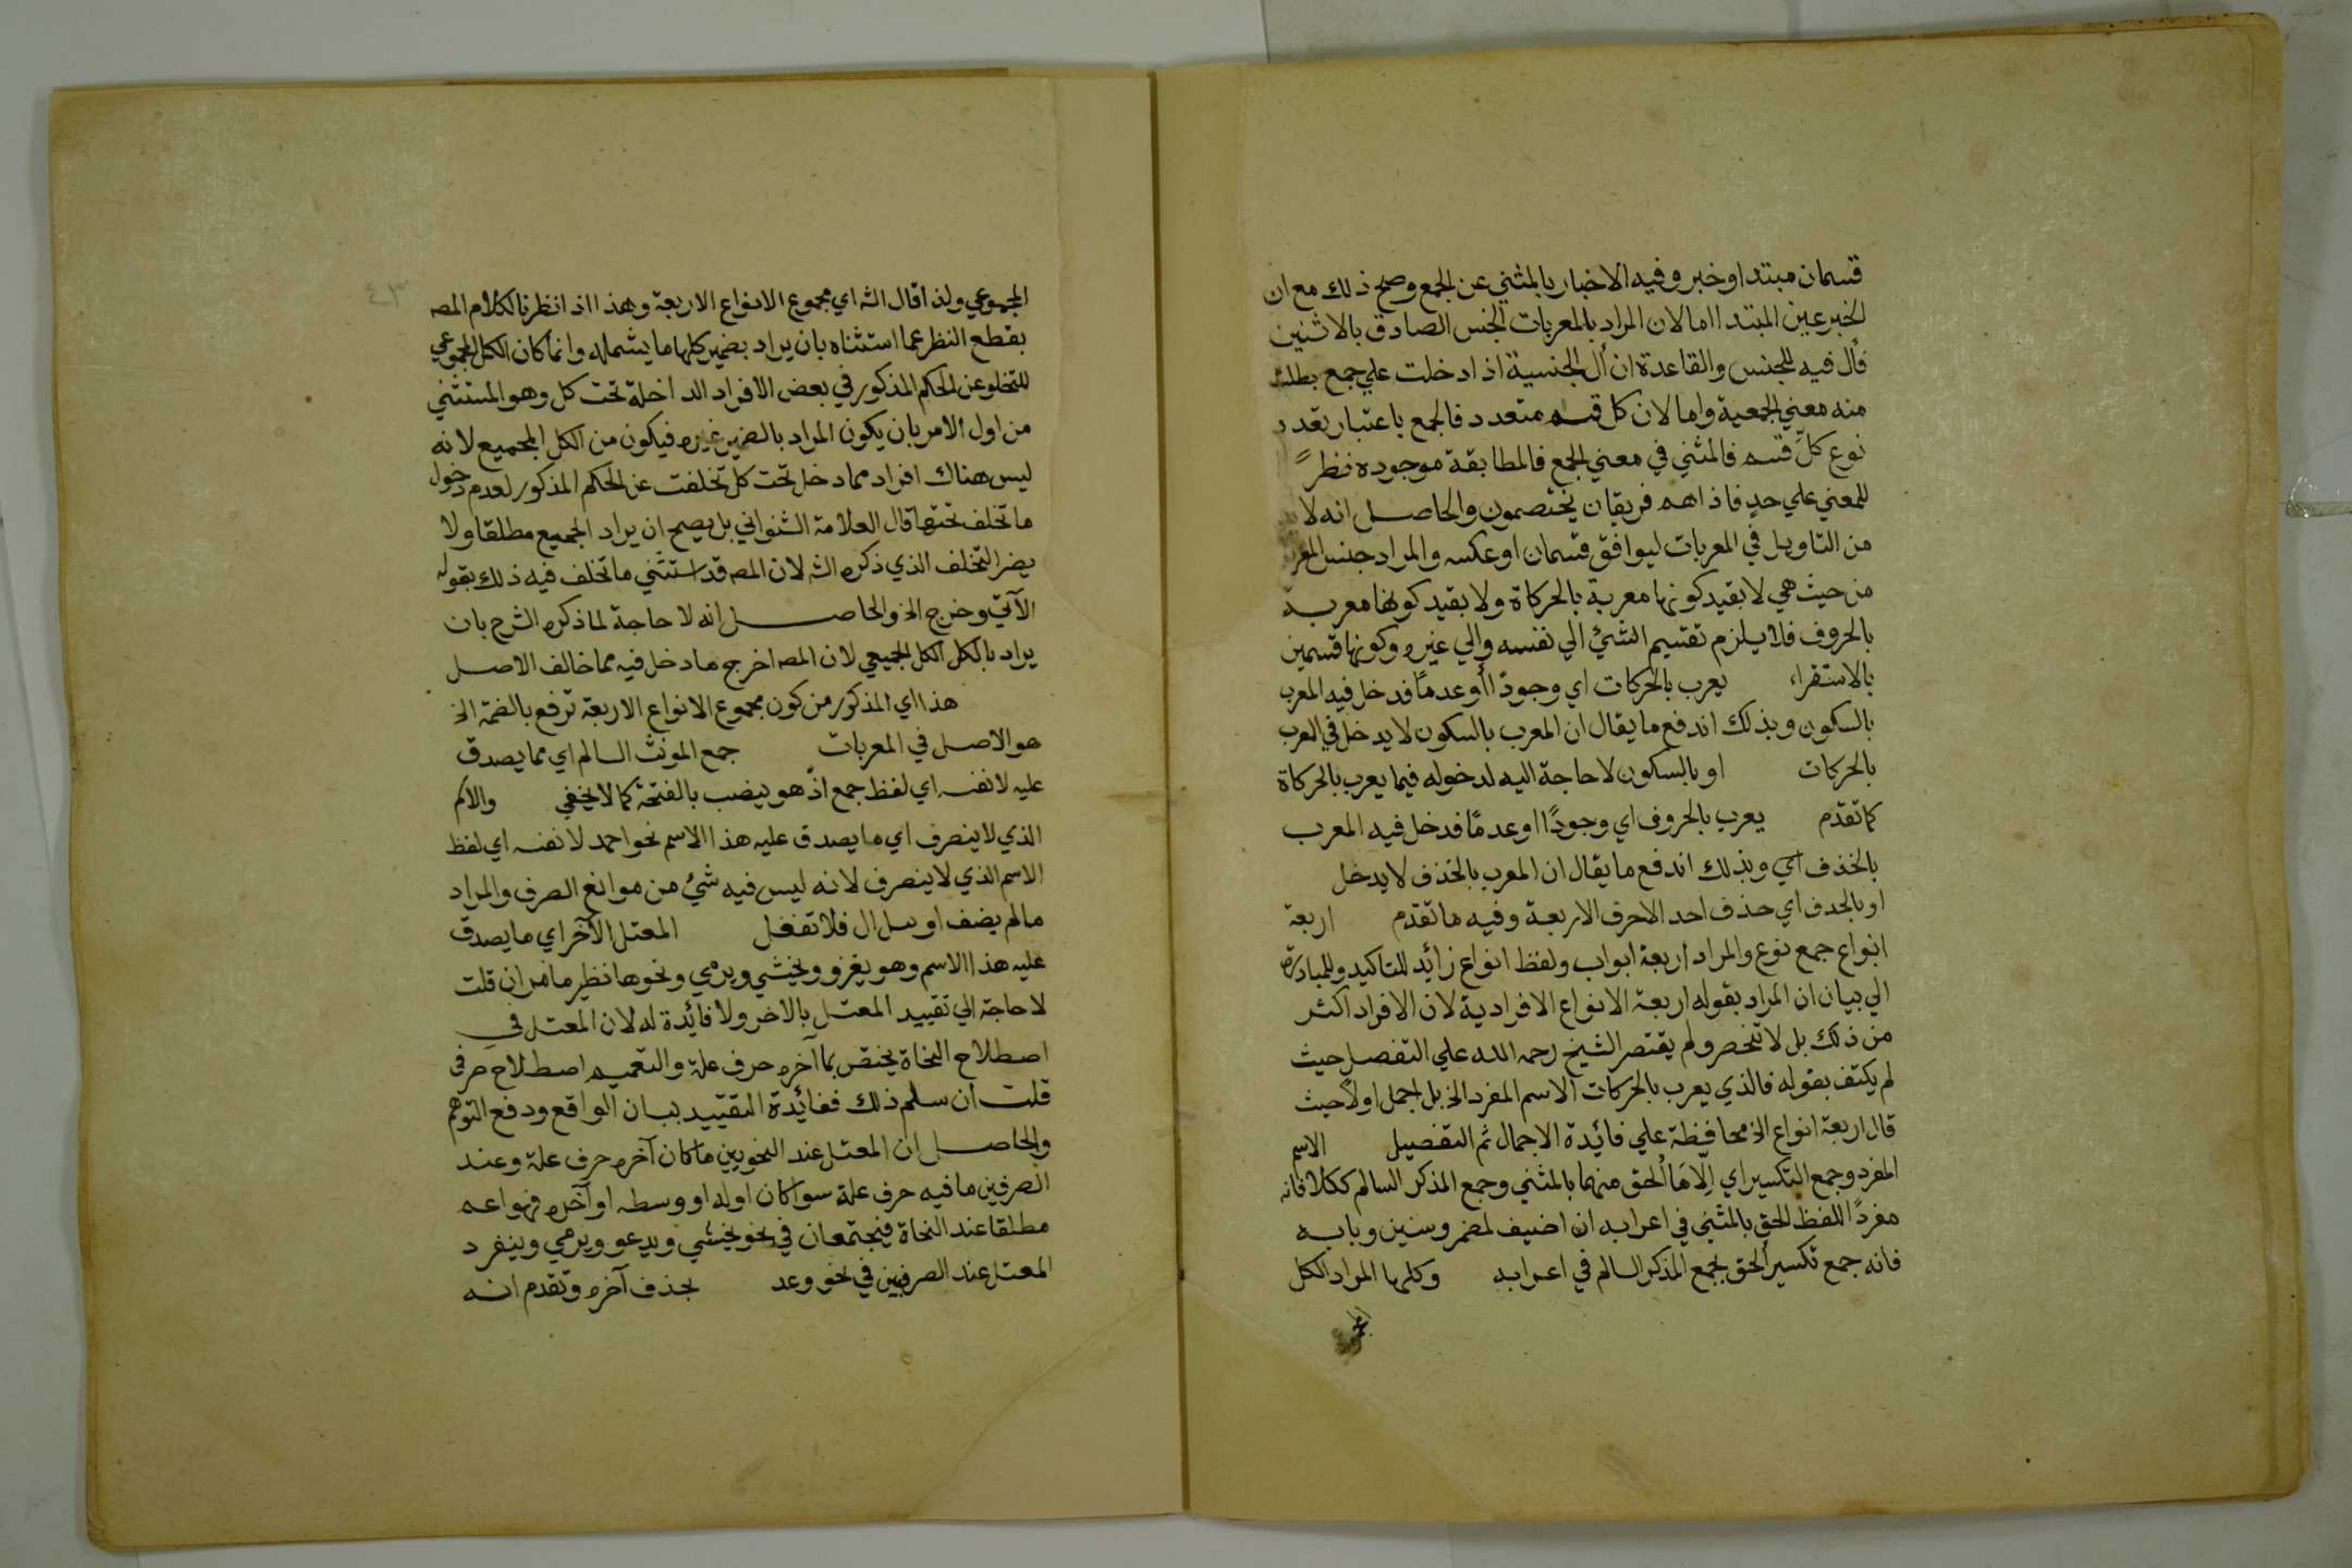 قسمان مبتدا وخبر وفيه الاخبار بالمثني عن الجمع وصح ذلك مع ان
الخبر عين المبتدا اما لان المراد بالمعربات الجنس الصادق بالاثنين
فأل فيه للجنس والقاعدة ان أل الجنسية اذا دخلت علي جمع بطلت
منه معني الجمعية واما لان كل قسم متعدد فالجمع باعتبار تعدد
نوع كل قسم فالمثني في معني الجمع فالمطابقة موجودة نظرً
للمعني علي حد فاذا هم فريقان يختصمون والحاصل انه لا
من التاويل في المعربات ليوافق قسمان او عكسه والمراد جنس المعر
من حيث هي لا بقيد كونها معربة بالحركاة ولا بقيد كونها معربة
بالحروف فلا يلزم تقسيم الشئ الي نفسه والي غيره وكونها قسمين
بالاستقراء يعرب بالحركات اي وجودًا أو عدمًا فدخل فيه المعرب
بالسكون وبذلك اندفع ما يقال ان المعرب بالسكون لا يدخل في المعرب
بالحركات او بالسكون لا حاجة اليه لدخوله فيما يعرب بالحركاة
كما تقدم يعرب بالحروف اي وجودًا او عدمًا فدخل فيه المعرب
بالحذف اي وبذلك اندفع ما يقال ان المعرب بالحذف لا يدخل
او بالحذف اي حذف احد الاحرف الاربعة وفيه ما تقدم اربعة
انواع جمع نوع والمراد اربعة ابواب ولفظ انواع زائد للتاكيد وللمبادرة
الي بيان ان المراد بقوله اربعة الانواع الافرادية لان الافراد اكثر
من ذلك بل لا تنحصر ولم يقتصر الشيخ رحمه الله علي التفصل حيث
لم يكتف بقوله فالذي يعرب بالحركات الاسم المفرد الخ بل اجمل اولا حيث
قال اربعة انواع الخ محافظة علي فائدة الاجمال ثم التفصيل الاسم
المفرد وجمع التكسير اي إلا ما ألحق منهما بالمثني وجمع المذكر السالم ككلا فانه
مفردًا للفظ الحق بالمثني في اعرابه ان اضيف لمضمر وسنين وبابه
فانه جمع تكسير الحق بجمع المذكر السالم في اعرابه وكلها المراد الكل
٤٣
المجموعي ولذا قال الشه اي مجموع الانواع الاربعة وهذا اذا نظرنا لكلام المصه
بقطع النظر عما استثناه بان يراد بضمير كلها ما يشمله وانما كان الكل المجموعي
للتخلو عن الحكم المذكور في بعض الافراد الداخلة تحت كل وهو المستثني
من اول الامر بان يكون المراد بالضمير غيره فيكون من الكل الجميع لانه
ليس هناك افراد مما دخل تحت كل تخلفت عن الحكم المذكور لعدم دخول
ما تخلف تحتها قال العلامة الشنواني بل يصح ان يراد الجميع مطلقا ولا
يضر التخلف الذي ذكره الشه لان المصه قد استثني ما تخلف فيه ذلك بقوله
الآتي وخرج الخ والحاصل انه لا حاجة لما ذكره الشرح بان
يراد بالكل الكل الجميعي لان المصه اخرج ما دخل فيه مما خالف الاصل
هذا اي المذكور من كون مجموع الانواع الاربعة ترفع بالضمة الخ
هو الاصل في المعربات جمع المونث السالم اي مما يصدق
عليه لا نفسه اي لفظ جمع اذ هو ينصب بالفتحة كما لا يخفي والاسم
الذي لا ينصرف اي ما يصدق عليه هذا الاسم نحو احمد لا نفسه اي لفظ
الاسم الذي لا ينصرف لانه ليس فيه شئ من موانع الصرف والمراد
ما لم يضف او يتل ال فلا تغفل المعتل الآخر اي ما يصدق
عليه هذا الاسم وهو يغزو ويخشي ويرمي ونحوها نظير ما مر ان قلت
لا حاجة الي تقييد المعتل بالاخر ولا فائدة له لان المعتل في
اصطلاح النحاة يختص بما آخره حرف علة والتعميم اصطلاح صرفي
قلت ان سلم ذلك ففائدة التقييد بيان الواقع ودفع التوهم
والحاصل ان المعتل عند النحويين ما كان آخره حرف علة وعند
الصرفين ما فيه حرف علة سوا كان اوله او وسطه او آخره فهو اعم
مطلقا عند النحاة فيجتمعان في نحو يخشي ويدعو ويرمي وينفرد
المعتل عند الصرفيين في نحو وعد بحذف آخره وتقدم انه